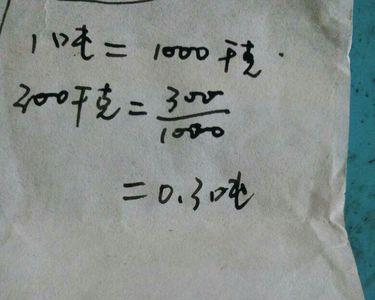 1吨=1000千克.
300千克=300/1000
=0.3吨